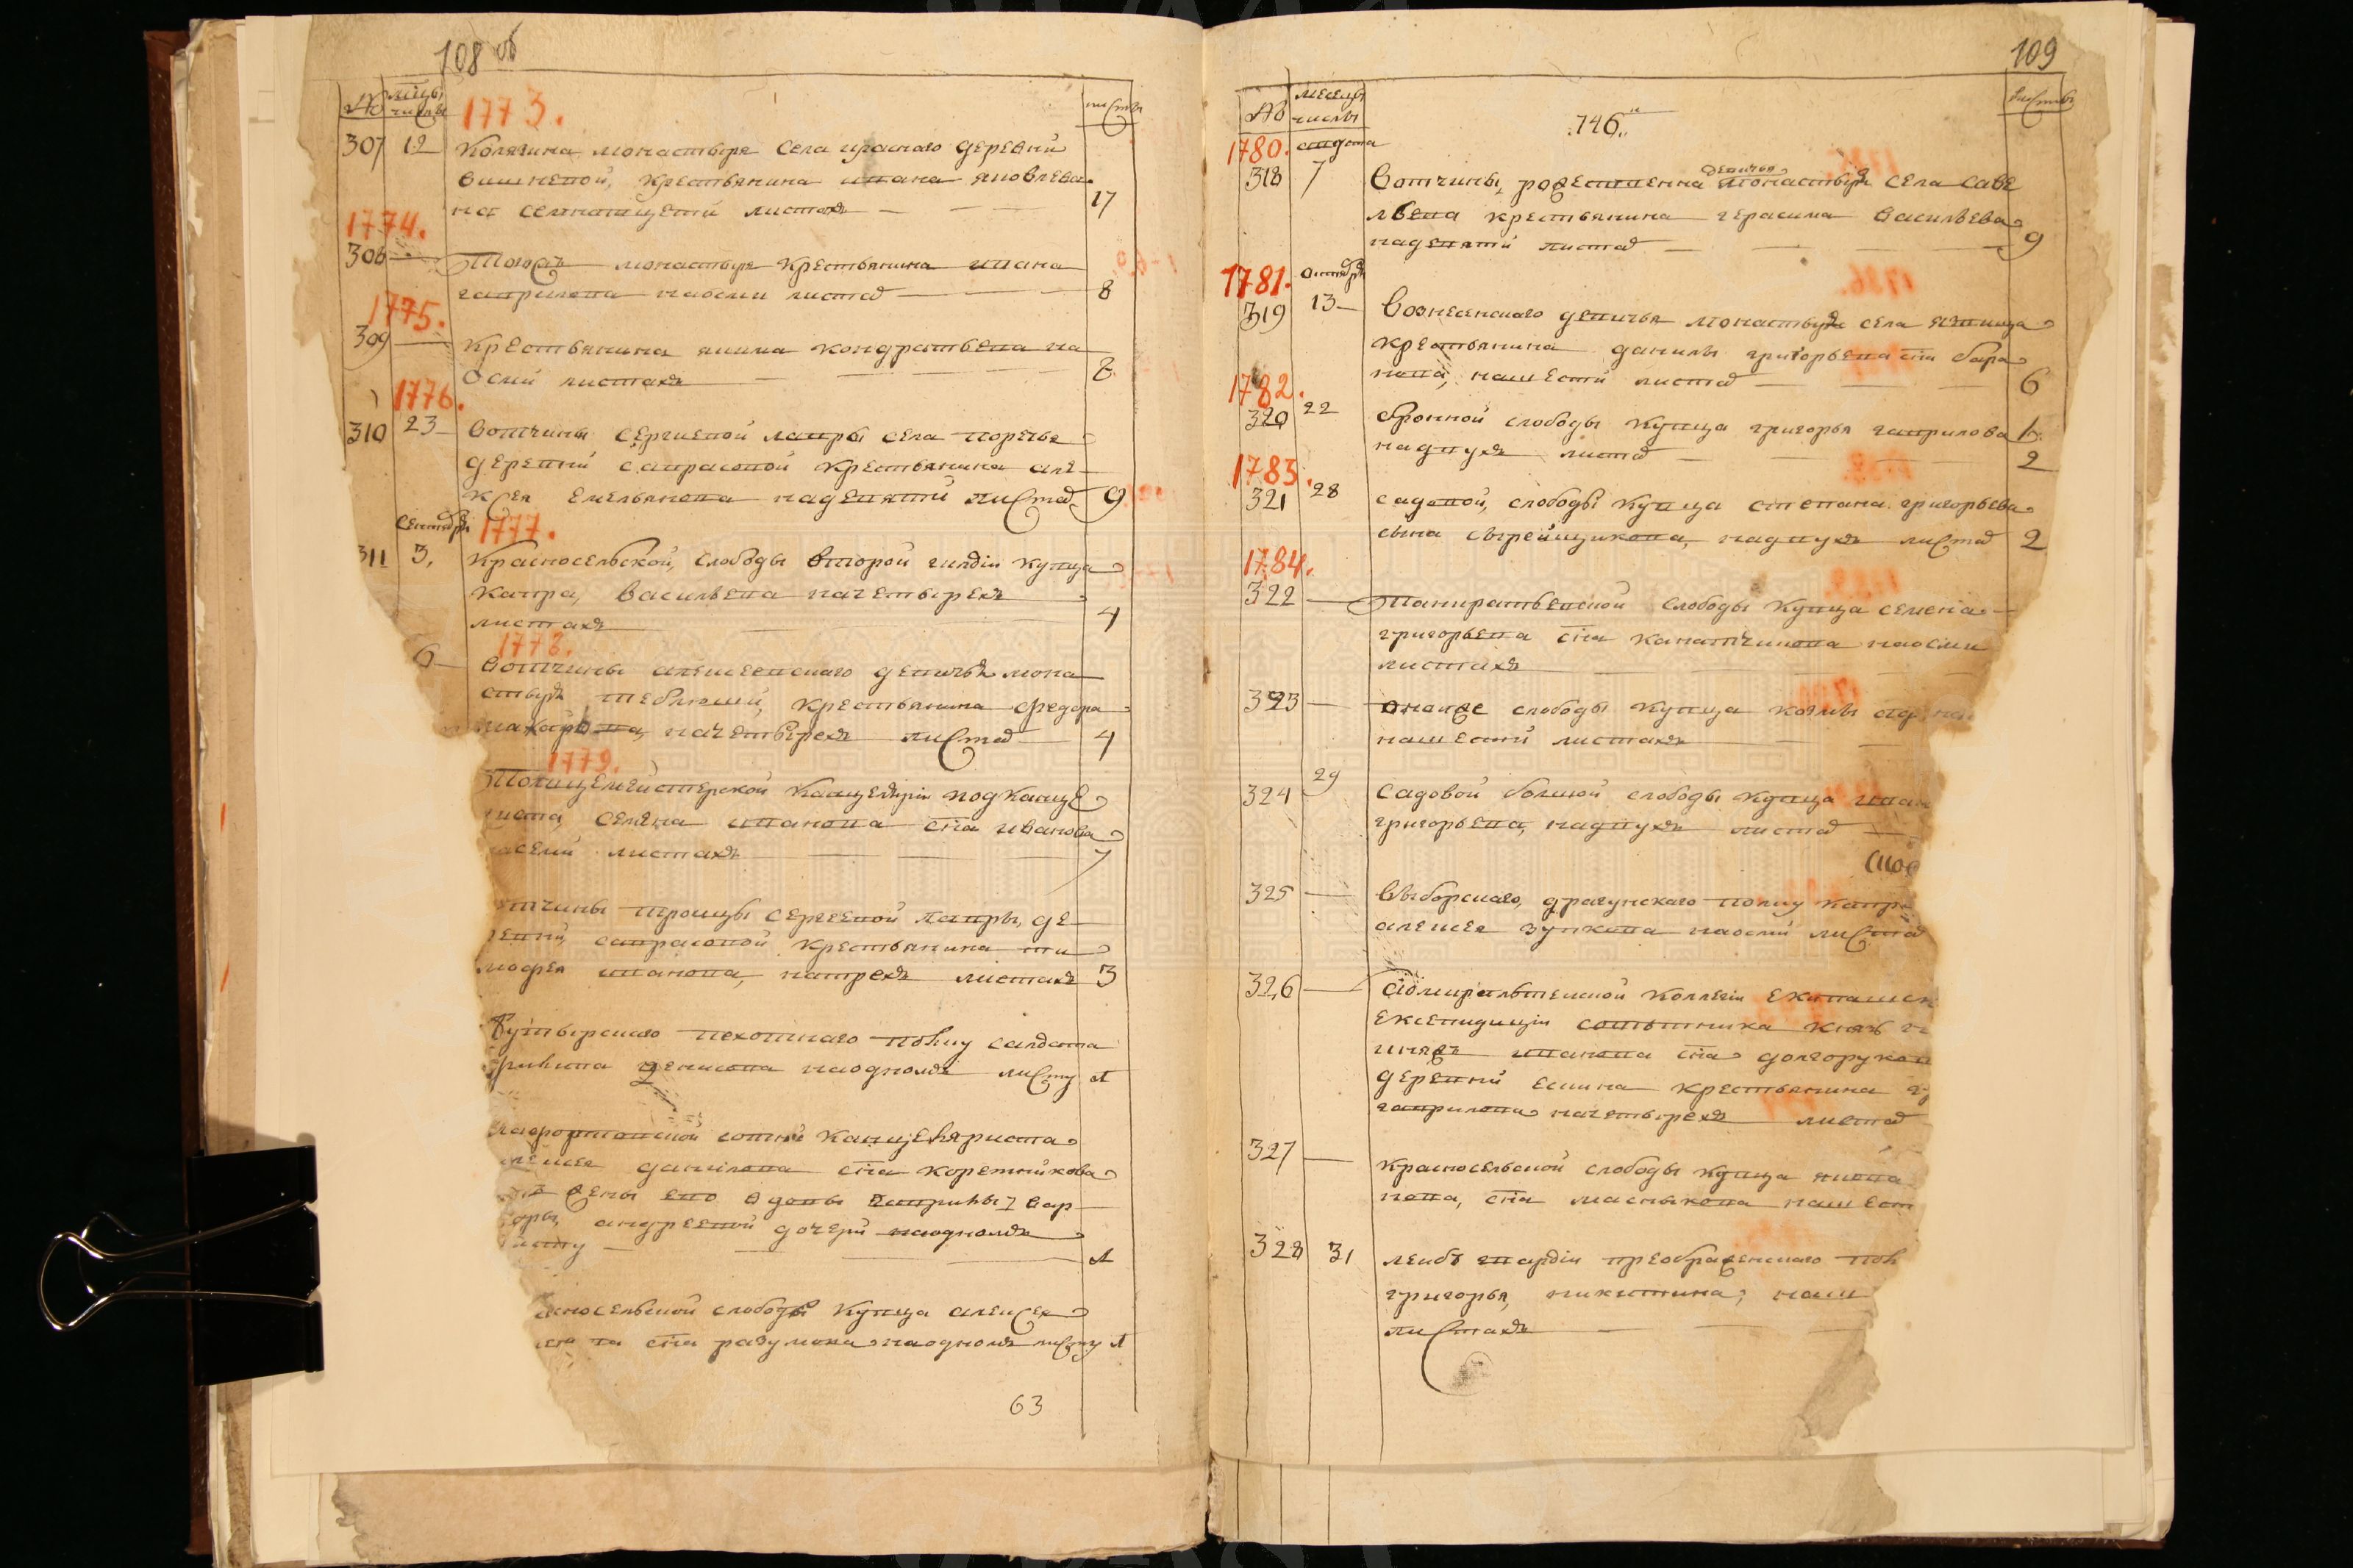 108 об
№ мцы числы 1773. листы
307 12 Колязина монастыря села краснаго деревни
вишневой, крестьянина ивана яковлева
на семнатцети листахъ 17
1774.
308 Тогожъ монастыря крестьянина ивана
гаврилова наосми листахъ 8
1775.
309 крестьянина якима кондратьева на
осми листахъ 8
1776.
310 23 вотчины сергиевой лавры села поречья
деревни саврасовой крестьянина але
ксея емельянова надевяти листахъ 9
сентября 1777.
311 3. Красносельской, слободы второй гилдіи купца
лавра, васильева начетырехъ
листахъ 4
1778.
6 вотчины алексеевскаго девичья мона
стыря крестьянина федора
начетырехъ листахъ 4
1779.
Полицемейстерской канцелярии подканце
листа, семена иванова сна иванова
насеми листахъ 7
отчины троицы сергиевой лавры, де
ревни, саврасовой крестьянина ти
мофея иванова, натрехъ листахъ 3
Бутырскаго пехотнаго полку салдата
денисова наодномъ листу 1
лафортовской сотни канцеляриста
алексея данилова сна коретникова
жены ево вдовы вар
вары, андреевой дочери наодномъ
листу 1
асносельской слободы купца алексея
сна разумова наодномъ листу 1
63
109
№ месецы числы 746. листы
1780. августа
318 7 вотчины, рождествена девичья монастыря села саве
льева крестьянина герасима васильева
надевяти листах 9
1781. октября
319 13 вознесенскаго девичья монастыря села
крестьянина данилы григорьева сна бара
нова, нашести листах 6
1782.
320 22 бронной слободы купца григорья гаврилова
надвухъ листах 2
1783.
321 28 садовой, слободы купца степана григорьева
сына сырейщикова, надвухъ листах 2
1784.
322 таниратьевской слободы купца семена
григорьева сна канатчикова наосми
листахъ
323 онаеже слободы купца козмы
нашести листахъ
324 29 садовой болшой слободы купца иван
григорьева, надвухъ листах
325 выборскаго, драгунскаго полку капр
алексея зуикова наосми листах
326 адмиралтейской коллегіи
екіспедиціи сотника князь
иванова сна долгоруков
деревни есина крестьянина
гаврилова начетырехъ листах
327 красносельской слободы купца якова
нова, сна маснъкова нашест
328 31 лейбъ гвардіи преображенскаго пол
григорья, никитина, наш
листахъ